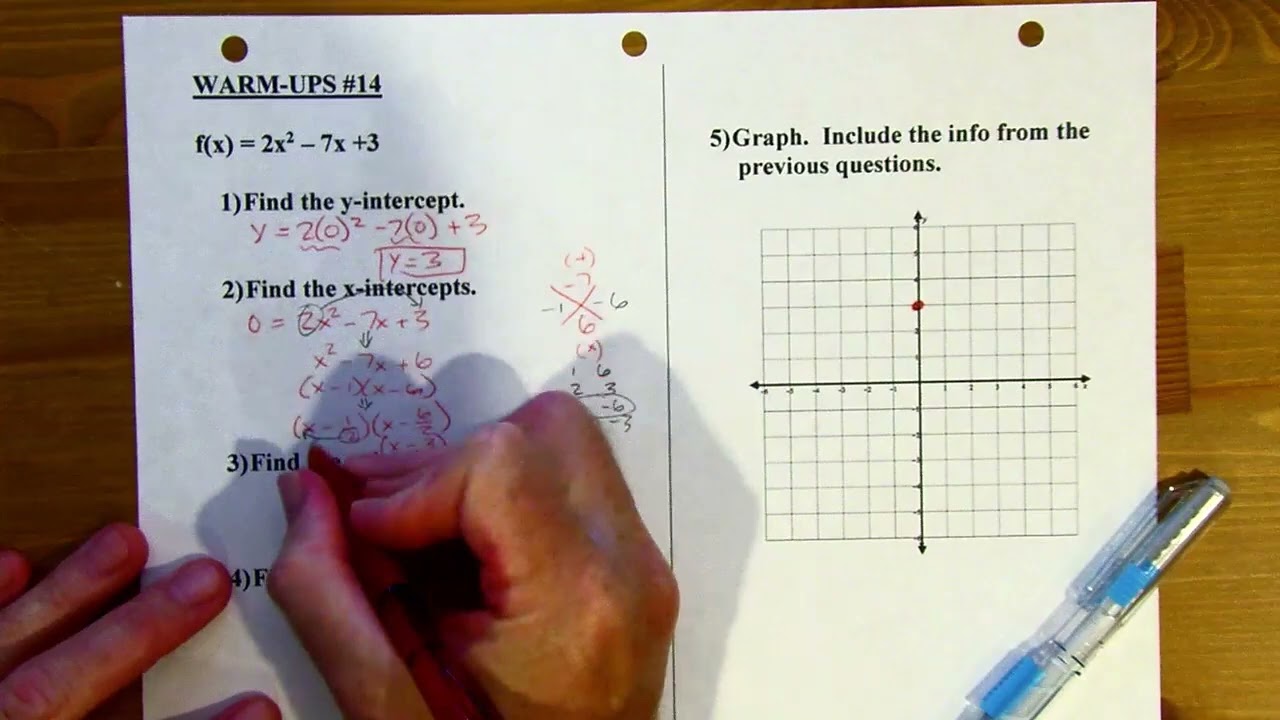 WARM-UPS #14
f(x) = 2x² – 7x +3
1)Find the y-intercept.
y = 2(0)² -7(0) + 3
y = 3
2)Find the x-intercepts.
0 = 2x² - 7x + 3
x² - 7x + 6
(x - 1)(x - 6)
(x - 1/2)(x - 6/2)
(x - 3)
3)Find
4)F
(+)
-7
-1 -6
6
(x)
1 6
2 3
-6
-3
5)Graph. Include the info from the
previous questions.